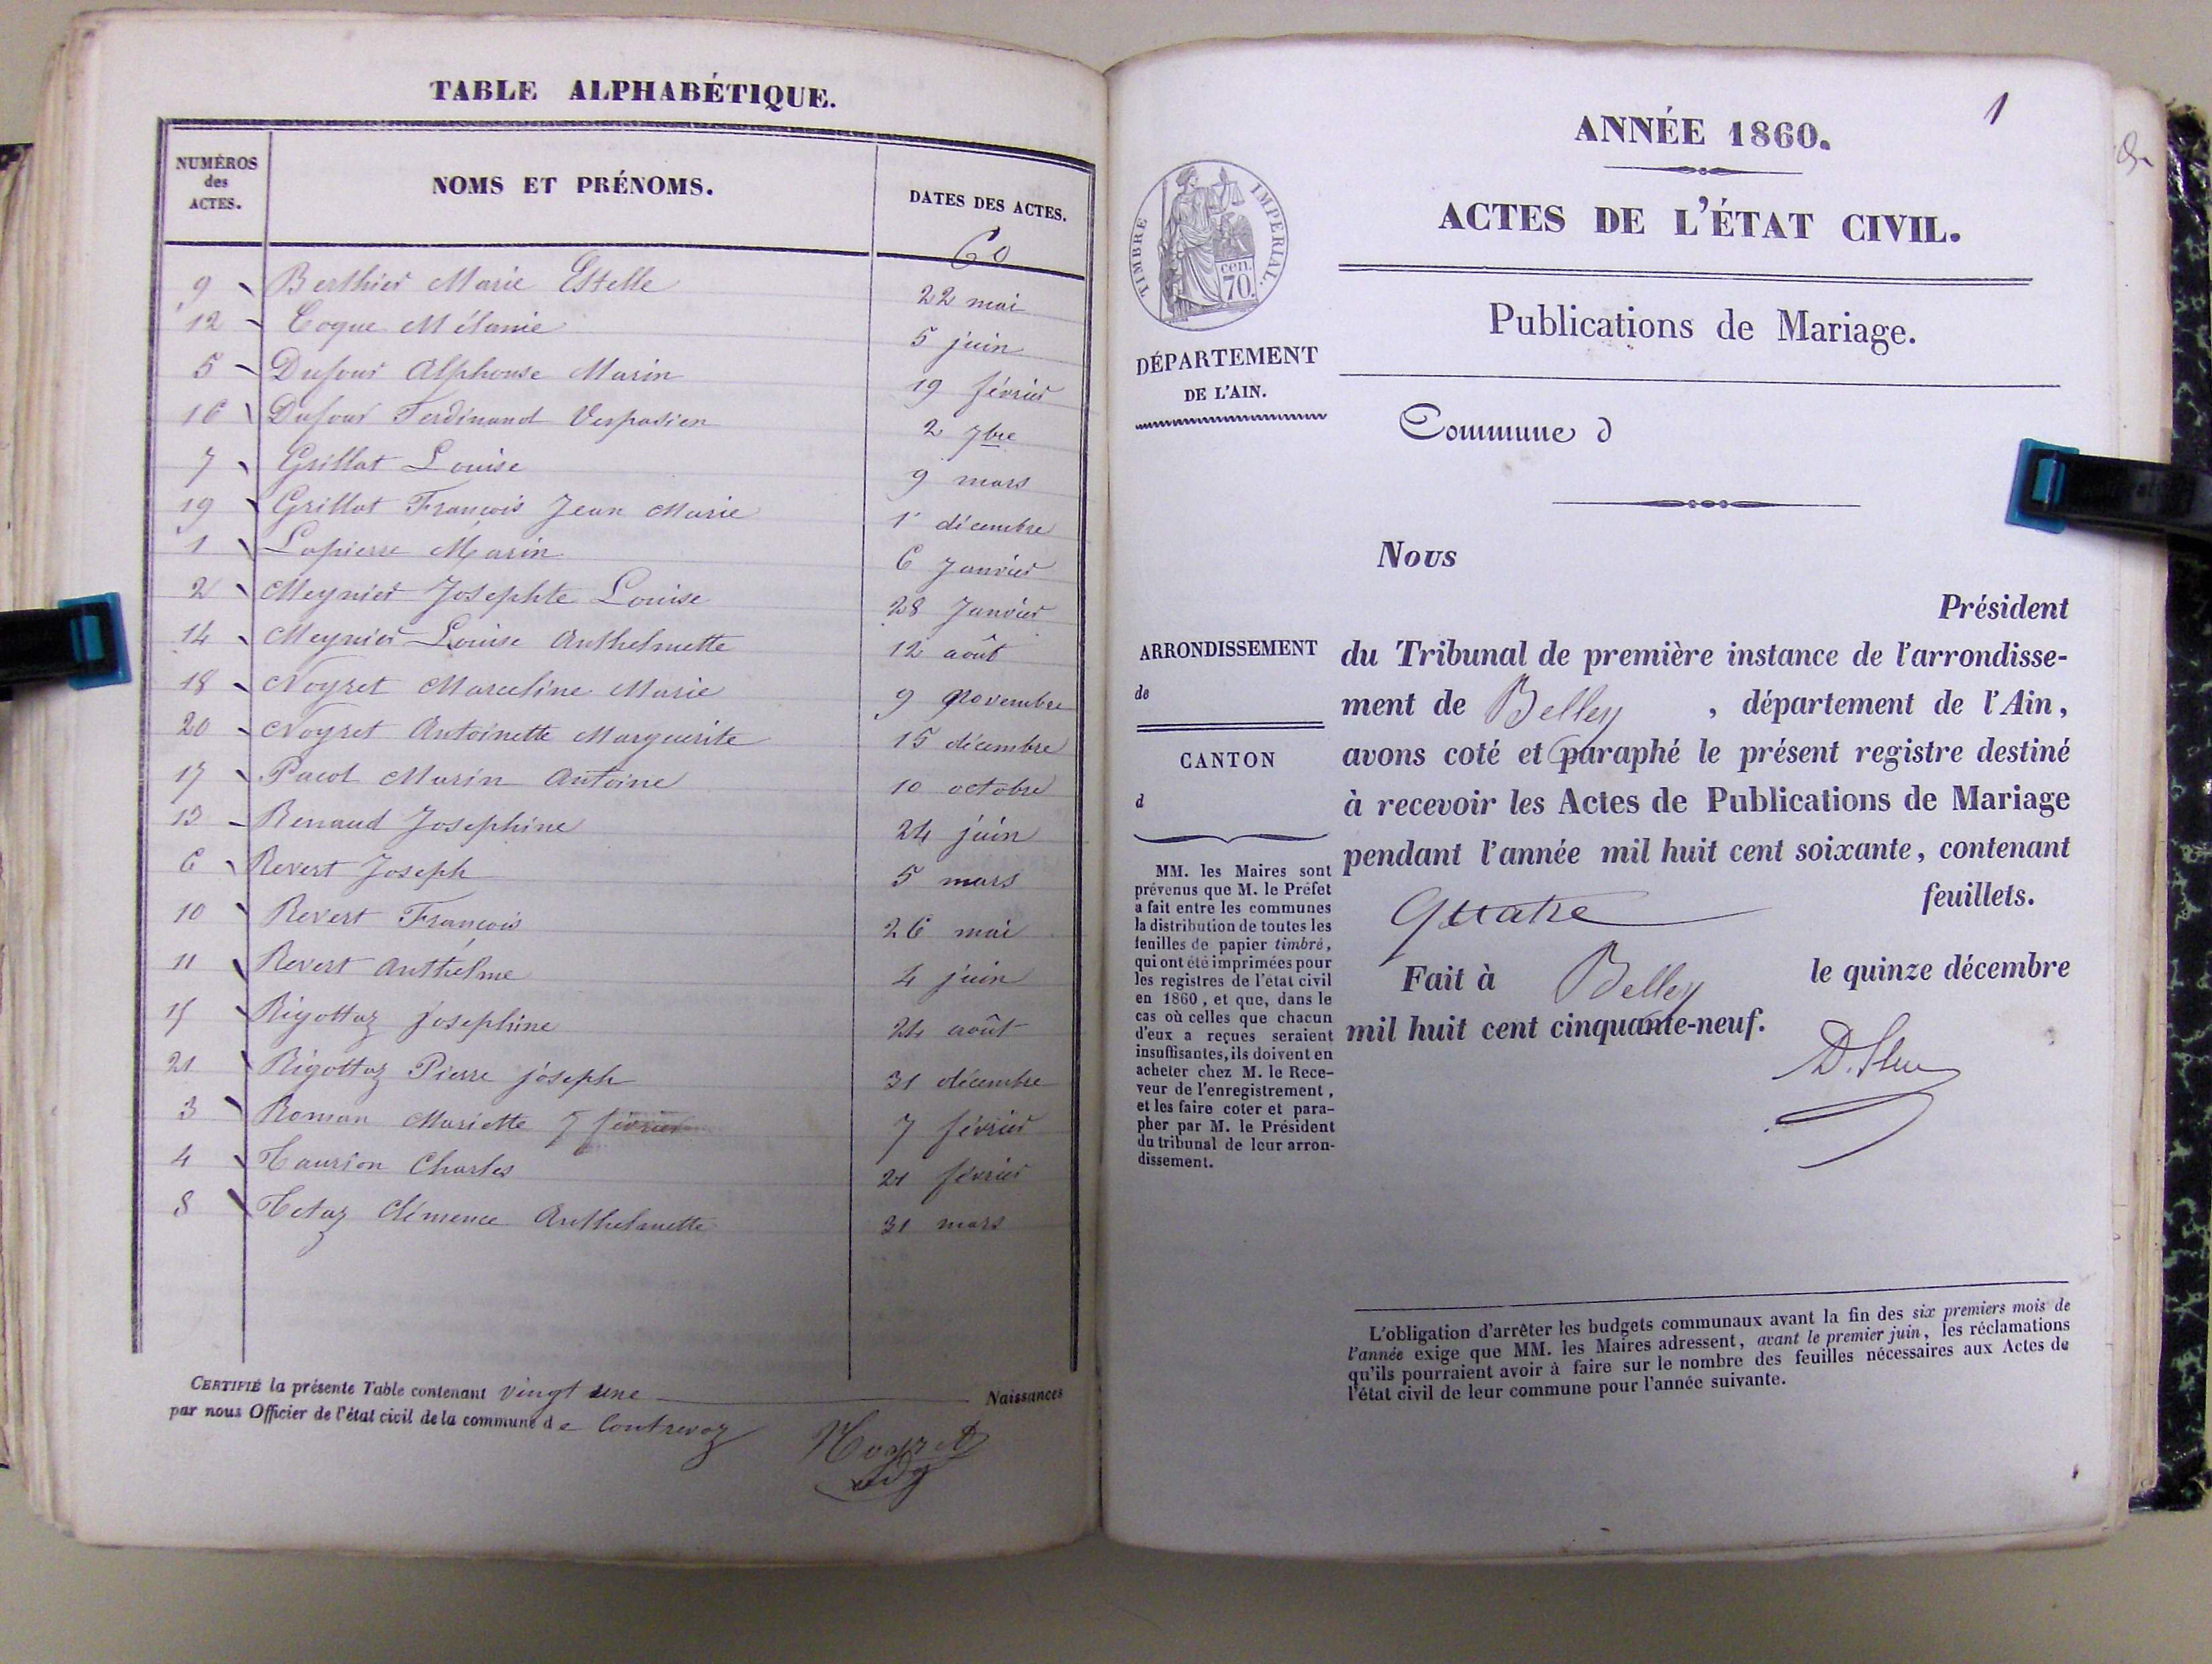 TABLE ALPHABÉTIQUE.
NUMÉROS des ACTES. NOMS ET PRÉNOMS. DATES DES ACTES.
60
9 Berthier Marie Estelle 22 mai
12 Coque Mélanie 5 juin
5 Dufour Alphonse Marin 19 février
16 Dufour Ferdinand Vespasien 2 7bre
7 Grillat Louise 9 mars
19 Grillat François Jean Marie 1r décembre
1 Lapierre Marin 6 Janvier
2 Meynier Josephte Louise 28 Janvier
14 Meynier Louise Anthelmette 12 août
18 Noyret Marceline Marie 9 Novembre
20 Noyret Antoinette Marguerite 15 décembre
17 Pacot Marin Antoine 10 octobre
13 Renaud Josephine 24 juin
6 Revert Joseph 5 mars
10 Revert François 26 mai
11 Revert Anthelme 4 juin
15 Rigottaz josephine 24 août
21 Rigottaz Pierre joseph 31 décembre
3 Roman Mariette 7 février 7 février
4 Taurion Charles 21 février
8 Tetaz Clémence Anthelmette 31 mars
CERTIFIÉ la présente Table contenant vingt une Naissances
par nous Officier de l'état civil de la commune de Contrevoz
Noyret
adj
1
ANNÉE 1860.
ACTES DE L'ÉTAT CIVIL.
TIMBRE IMPÉRIAL.
cen.
70.
Publications de Mariage.
DÉPARTEMENT
DE L'AIN.
Commune d
Nous
Président
ARRONDISSEMENT
de
CANTON
d
du Tribunal de première instance de l'arrondisse-
ment de Belley, département de l'Ain,
avons coté et paraphé le présent registre destiné
à recevoir les Actes de Publications de Mariage
pendant l'année mil huit cent soixante, contenant
quatre feuillets.
Fait à Belley le quinze décembre
mil huit cent cinquante-neuf.
MM. les Maires sont
prévenus que M. le Préfet
a fait entre les communes
la distribution de toutes les
feuilles de papier timbré,
qui ont été imprimées pour
les registres de l'état civil
en 1860, et que, dans le
cas où celles que chacun
d'eux a reçues seraient
insuffisantes, ils doivent en
acheter chez M. le Rece-
veur de l'enregistrement,
et les faire coter et para-
pher par M. le Président
du tribunal de leur arron-
dissement.
L'obligation d'arrêter les budgets communaux avant la fin des six premiers mois de
l'année exige que MM. les Maires adressent, avant le premier juin, les réclamations
qu'ils pourraient avoir à faire sur le nombre des feuilles nécessaires aux Actes de
l'état civil de leur commune pour l'année suivante.